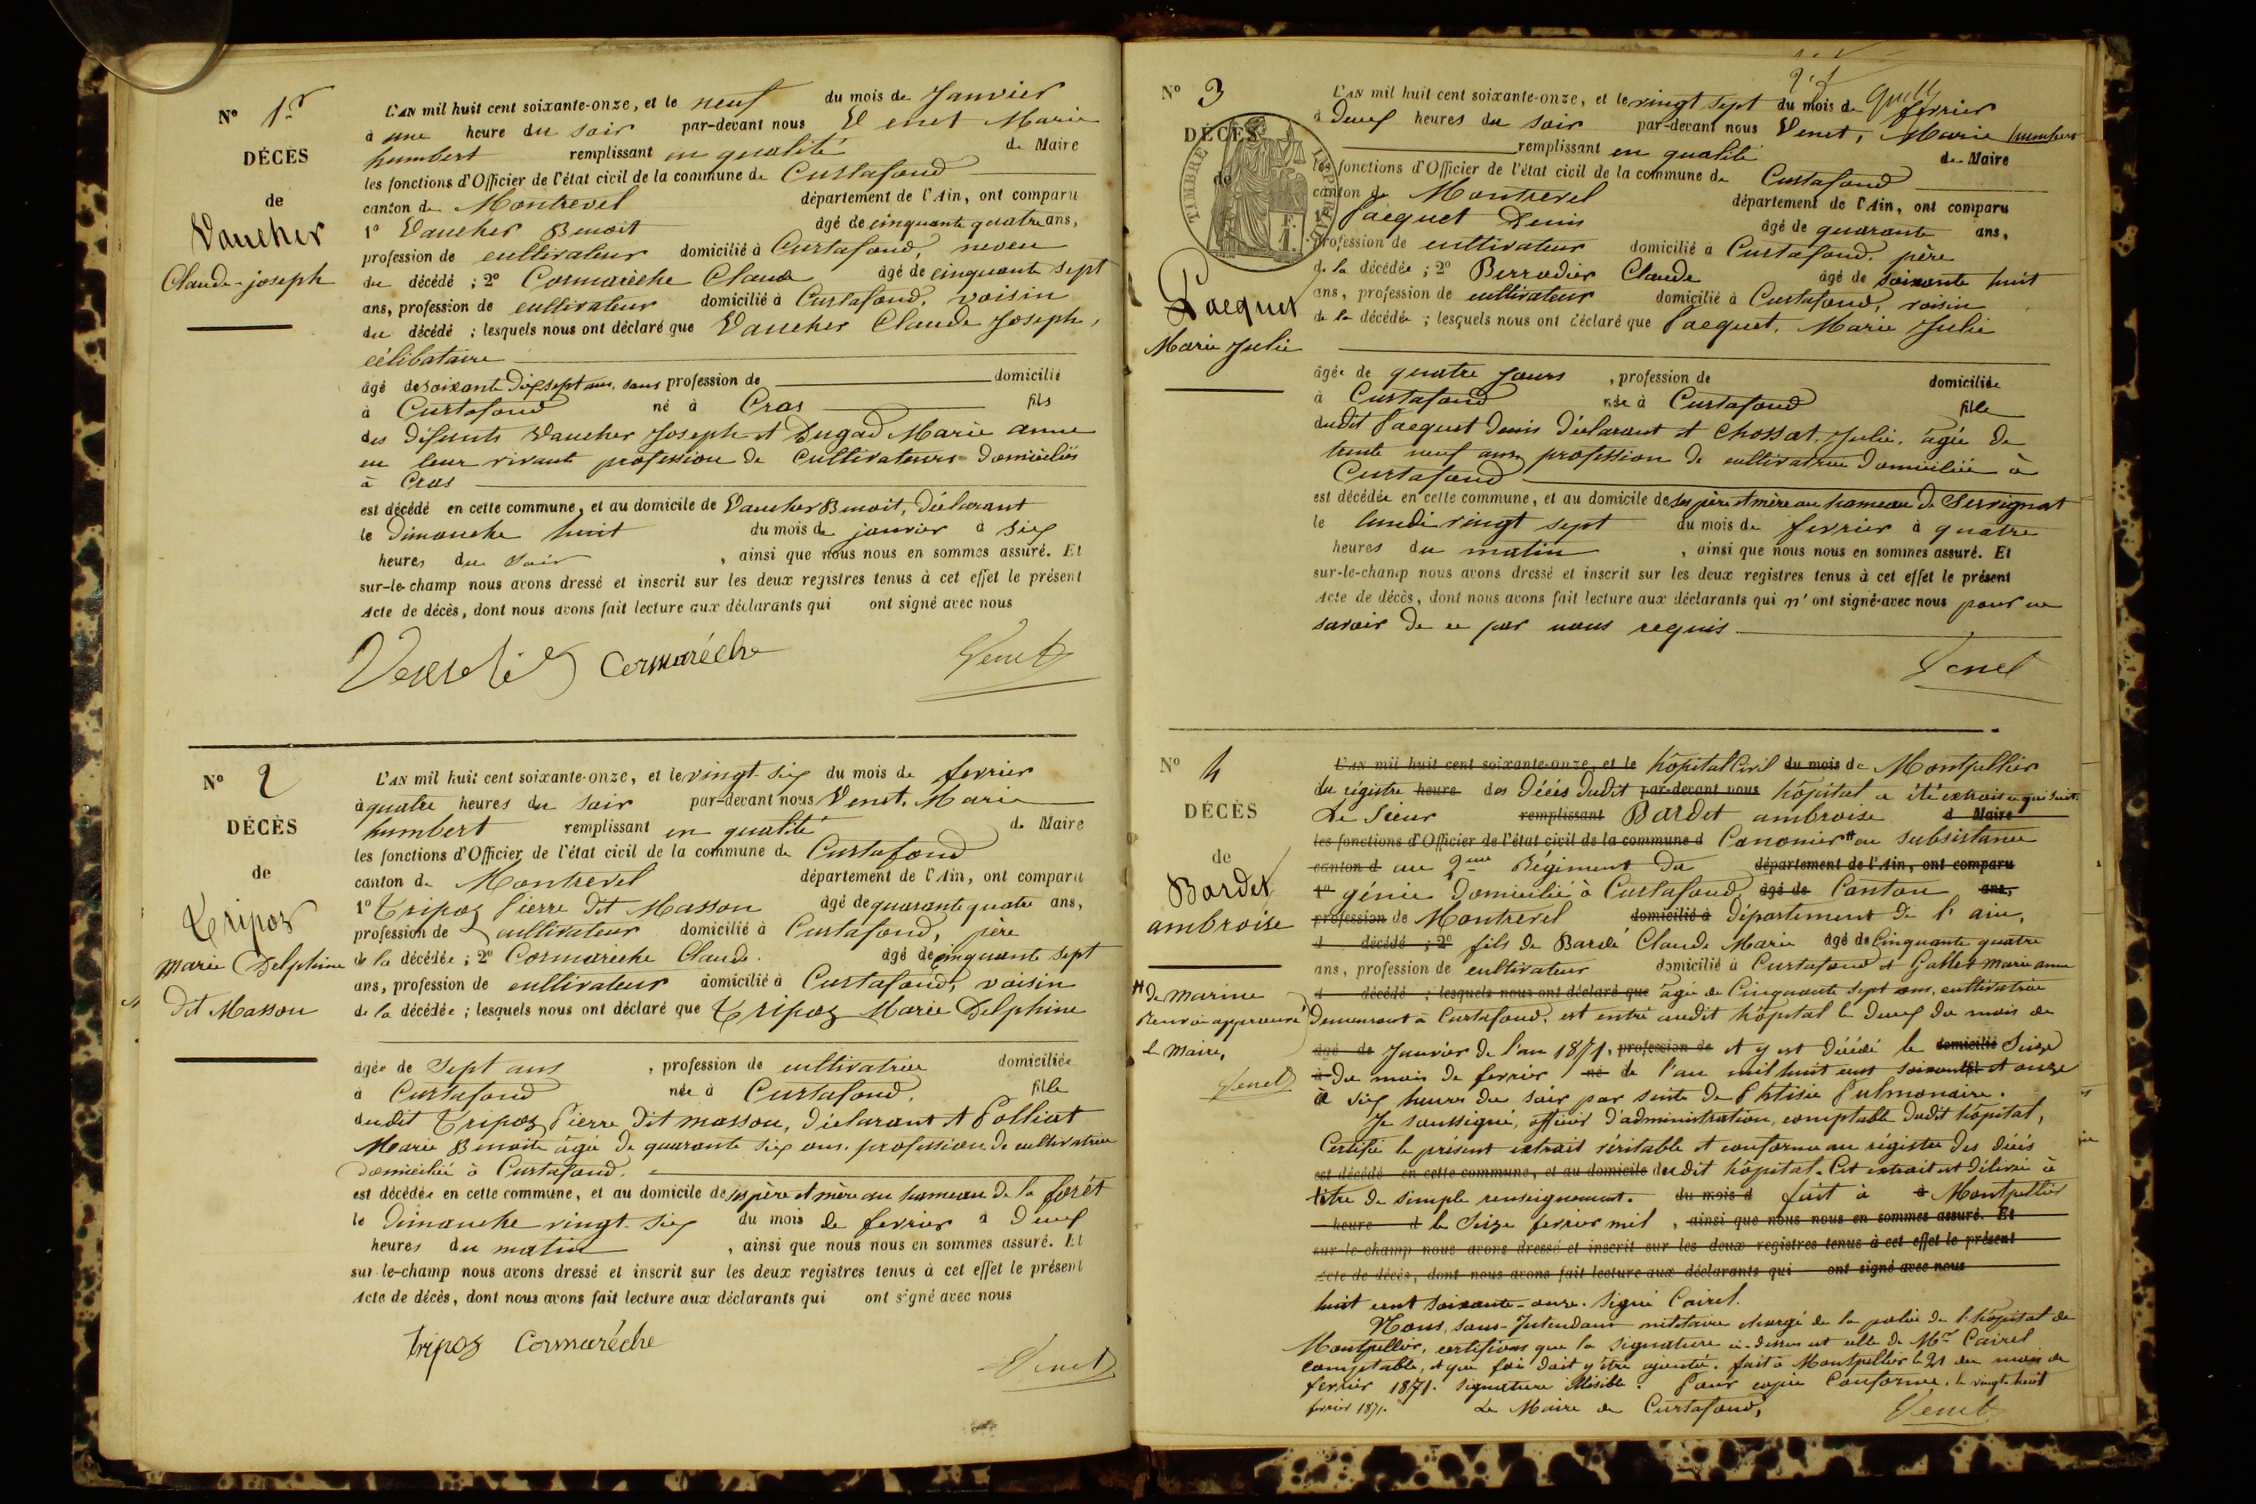 N° 1er
DÉCÈS
de
Vaucher
Claude-joseph
L'AN mil huit cent soixante-onze, et le neuf du mois de Janvier
à une heure du soir par-devant nous Venet Marie
humbert remplissant en qualité de Maire
les fonctions d'Officier de l'état civil de la commune de Curtafond
canton de Montrevel département de l'Ain, ont comparu
1° Vaucher Benoit âgé de cinquante quatre ans,
profession de cultivateur domicilié à Curtafond, neveu
du décédé ; 2° Cormarèche Claude âgé de cinquante sept
ans, profession de cultivateur domicilié à Curtafond, voisin
du décédé ; lesquels nous ont déclaré que Vaucher Claude Joseph,
célibataire
âgé de soixante dix sept ans, sans profession de domicilié
à Curtafond né à Cras fils
des défunts Vaucher Joseph et Dugad Marie anne
en leur vivant profession de Cultivateurs domiciliés
à Cras
est décédé en cette commune, et au domicile de Vaucher Benoit, déclarant
le Dimanche huit du mois de janvier à six
heures du soir, ainsi que nous nous en sommes assuré. Et
sur-le-champ nous avons dressé et inscrit sur les deux registres tenus à cet effet le présent
Acte de décès, dont nous avons fait lecture aux déclarants qui ont signé avec nous
Cormarèche Venet
N° 2
DÉCÈS
de
Tripoz
Marie Delphine
dit Masson
L'AN mil huit cent soixante-onze, et le vingt-six du mois de fevrier
à quatre heures du soir par-devant nous Venet, Marie
humbert remplissant en qualité de Maire
les fonctions d'Officier de l'état civil de la commune de Curtafond
canton de Montrevel département de l'Ain, ont comparu
1° Tripoz Pierre dit Masson âgé de quarante quatre ans,
profession de cultivateur domicilié à Curtafond, père
de la décédée ; 2° Cormarèche Claude. âgé de cinquante sept
ans, profession de cultivateur domicilié à Curtafond, voisin
de la décédée ; lesquels nous ont déclaré que Tripoz Marie Delphine
âgée de sept ans, profession de cultivatrice domiciliée
à Curtafond née à Curtafond. fille
dudit Tripoz Pierre dit masson, déclarant et Polliat
Marie Benoite âgée de quarante six ans. profession de cultivatrice
domiciliée à Curtafond.
est décédée en cette commune, et au domicile de ses père et mère au hameau de la forêt
le Dimanche vingt-six du mois de fevrier à deux
heures du matin, ainsi que nous nous en sommes assuré. Et
sur-le-champ nous avons dressé et inscrit sur les deux registres tenus à cet effet le présent
Acte de décès, dont nous avons fait lecture aux déclarants qui ont signé avec nous
Tripoz Cormaréche
Venet
N° 3
DÉCÈS
de
Pacquet
Marie Julie
TIMBRE IMPÉRIAL
L'AN mil huit cent soixante-onze, et le vingt sept du mois de fevrier
à Deux heures du soir par-devant nous Venet, Marie humbert
remplissant en qualité de Maire
les fonctions d'Officier de l'état civil de la commune de Curtafond
canton de Montrevel département de l'Ain, ont comparu
1° Pacquet Denis âgé de quarante ans,
profession de cultivateur domicilié à Curtafond. père
de la décédée ; 2° Berrodier Claude âgé de soixante huit
ans, profession de cultivateur domicilié à Curtafond, voisin
de la décédée ; lesquels nous ont déclaré que Pacquet, Marie Julie
âgée de quatre jours, profession de domiciliée
à Curtafond née à Curtafond fille
dudit Pacquet Denis déclarant et Chossat. Julie. âgée de
trente neuf ans, profession de cultivatrice domiciliée à
Curtafond
est décédée en cette commune, et au domicile de ses père et mère au hameau de Servignat
le lundi vingt sept du mois de fevrier à quatre
heures du matin, ainsi que nous nous en sommes assuré. Et
sur-le-champ nous avons dressé et inscrit sur les deux registres tenus à cet effet le présent
Acte de décès, dont nous avons fait lecture aux déclarants qui n'ont signé avec nous pour ne
savoir de ce par nous requis
Venet
N° 4
DÉCÈS
de
Bardet
ambroise
# de marine
Renvoi approuvé
le Maire,
Venet
L'AN mil huit cent soixante-onze, et le hôpital Civil du mois de Montpellier
du régistre heure des décès dudit par-devant nous hôpital a été extrait ce qui suit.
Le Sieur remplissant Bardet ambroise d Maire
les fonctions d'Officier de l'état civil de la commune d Canonier # en subsistance
canton d au 2me Régiment du département de l'Ain, ont comparu
1° génie domicilié à Curtafond, âgé de Canton ans,
profession de Montrevel domicilié à Département de l'ain,
d décédé ; 2° fils de Bardé Claude Marie âgé de Cinquante quatre
ans, profession de cultivateur domicilié à Curtafond et Gallet Marie anne
d décédé ; lesquels nous ont déclaré que âgée de Cinquante sept ans, cultivatrice
demeurant à Curtafond. est entré audit hôpital le deux du mois de
âgé de Janvier de l'an 1871, profession de et y est décédé le domicilié Seize
à du mois de fevrier né de l'an mil huit cent soixante fil et onze
à six heures du soir par suite de Phtisie Pulmonaire.
Je soussigné, officier d'administration, comptable dudit hôpital,
Certifie le présent extrait véritable et conforme au régistre des décès
est décédé en cette commune, et au domicile de dudit hôpital. Cet extrait est délivré à
titre de simple renseignement. du mois d fait à à Montpellier
heure d le Seize fevrier mil, ainsi que nous nous en sommes assuré. Et
sur-le-champ nous avons dressé et inscrit sur les deux registres tenus à cet effet le présent
Acte de décès, dont nous avons fait lecture aux déclarants qui ont signé avec nous
huit cent soixante-onze. Signé Cairel.
Nous, sous-Intendant militaire chargé de la police de l'hôpital de
Montpellier, certifions que la signature ci-dessus est celle de Mr Cairel
comptable, et que foi doit y être ajoutée. fait à Montpellier le 21 du mois de
fevrier 1871. Signature illisible. Pour copie Conforme. le vingt-huit
fevrier 1871. Le Maire de Curtafond,
Venet